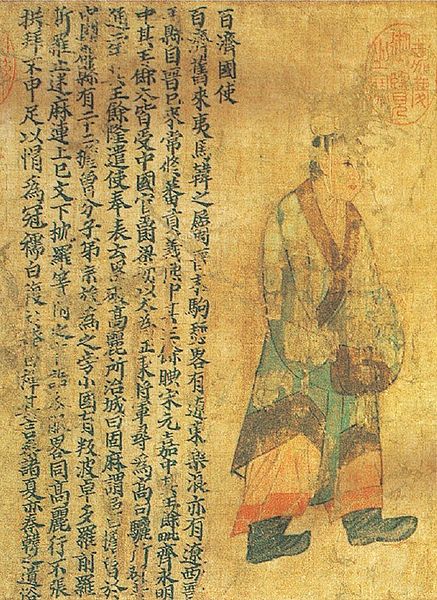 百濟國使
百濟舊來夷馬韓之屬晉末駒驪畧有遼東樂浪亦有遼西晉
平縣自晉已來常修蕃貢義熙中其王餘腆宋元嘉中其王餘毗齊永明
中其王餘太皆受中國官爵梁初以太爲征東將軍尋爲高句驪所破
通二年王餘隆遣使奉表云累破高麗所治城曰固麻謂邑曰檐魯於
中國郡縣有二十二檐魯分子弟宗族爲之旁小國有叛波卓多羅前羅
斯羅止迷麻連上己文下枕羅等附之言語衣服畧同高麗行不張
拱拜不申足以帽爲冠襦曰複衫袴曰褌其言參諸夏亦秦韓之遺俗